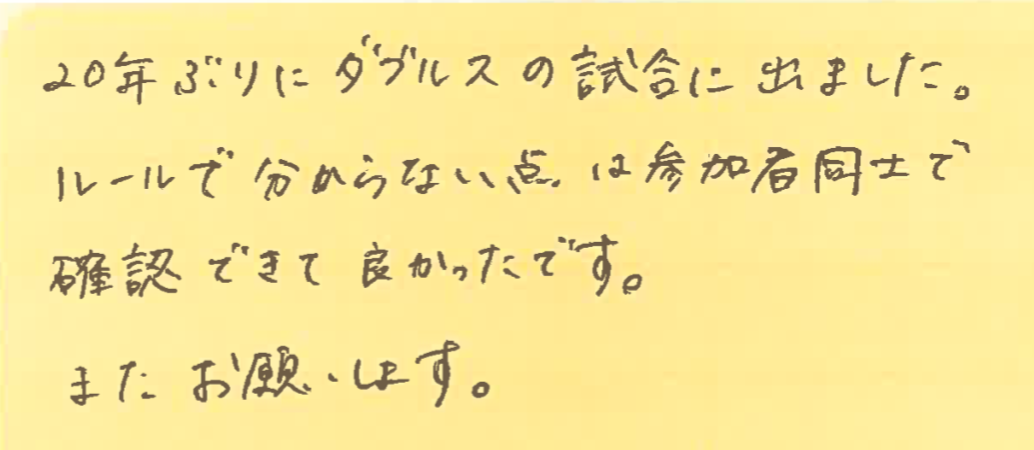 20年ぶりにダブルスの試合に出ました。
ルールで分からない点は参加者同士で
確認できて良かったです。
またお願いします。